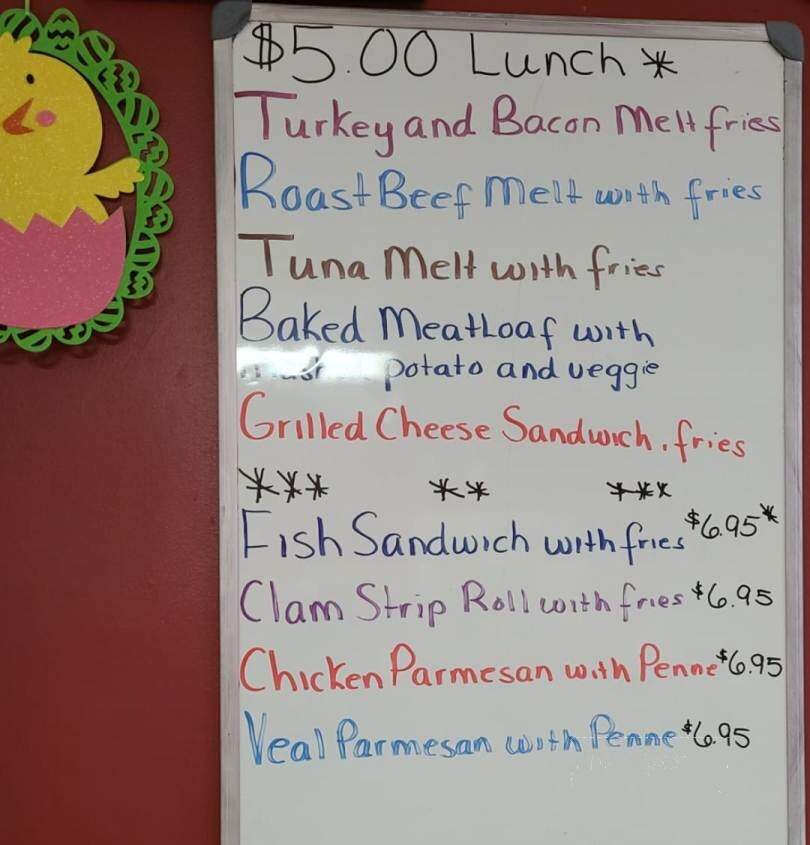 $5.00 Lunch *
Turkey and Bacon Melt fries
Roast Beef Melt with fries
Tuna Melt with fries
Baked MeatLoaf with
potato and veggie
Grilled Cheese Sandwich, fries
*** ** ***
Fish Sandwich with fries $6.95*
Clam Strip Roll with fries $6.95
Chicken Parmesan with Penne $6.95
Veal Parmesan with Penne $6.95